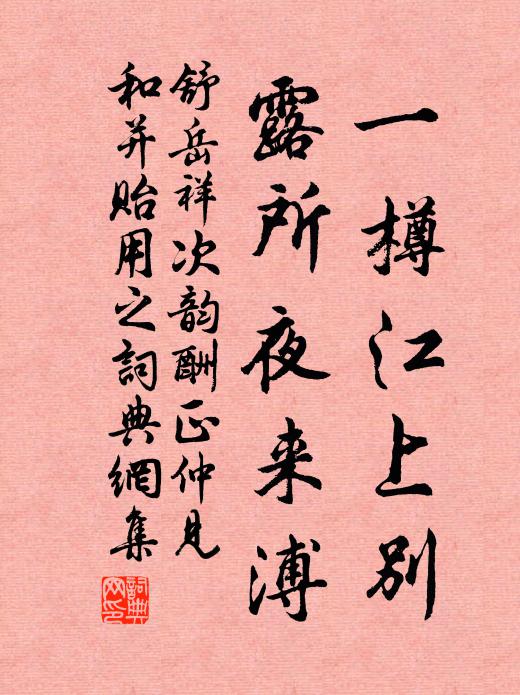 一樽江上别
露所夜来漙
舒岳祥次韵酬正仲见
和并贻用之詞典網集
詞典网印